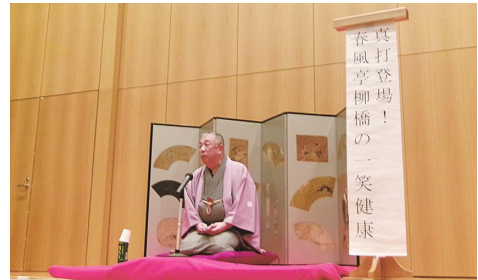 真打登場！
春風亭柳橋の一笑健康